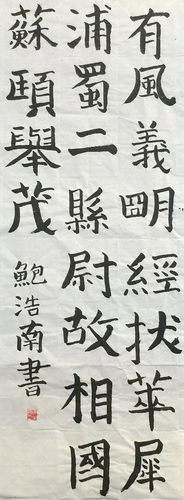 有風義明經拔萃犀
浦蜀二縣尉故相國
蘇頤舉茂
鮑浩南書